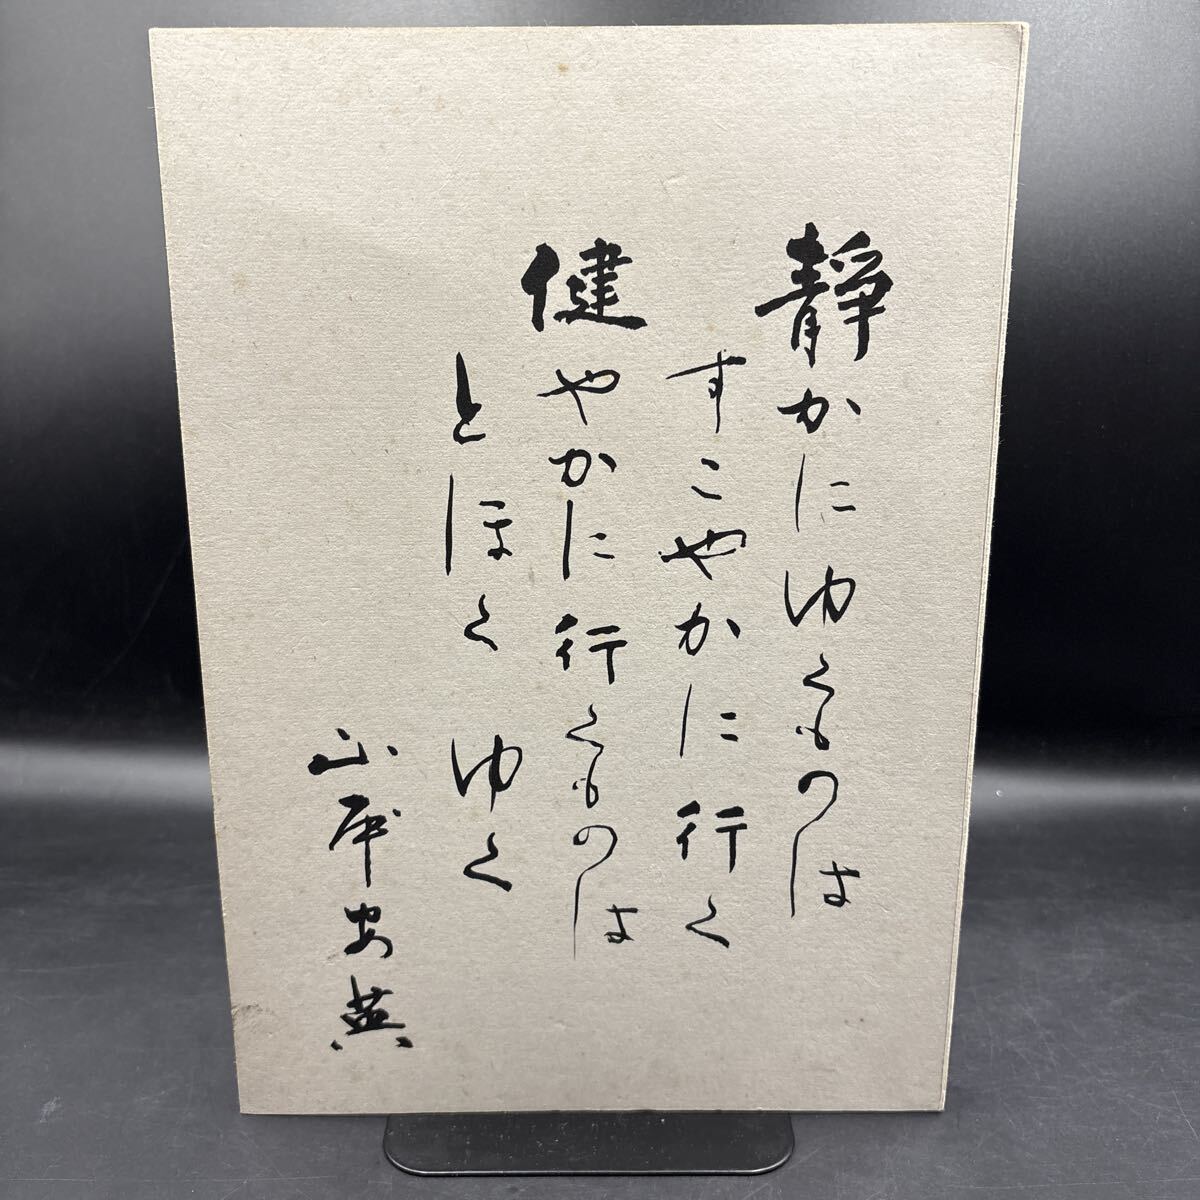 靜かにゆくものは
すこやかに行く
健やかに行くものは
とほくゆく
山岸安英